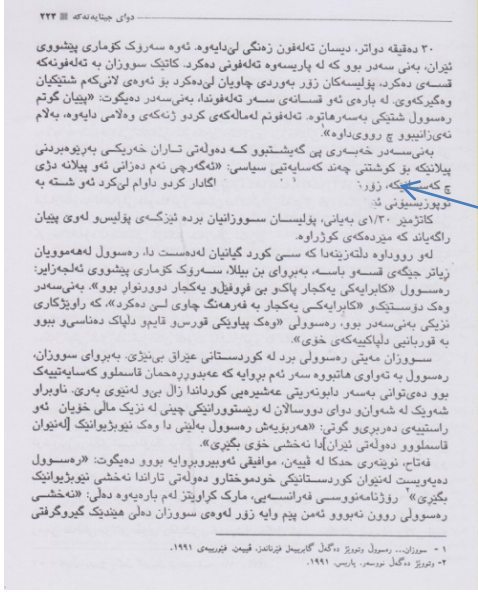 دوای جینایەتەکە ٢٢٣
٣٠ دەقیقە دواتر، دیسان تەلەفون زەنگی لێ‌دایەوە. ئەوە سەرۆک کۆماری پێشووی
ئێران، بەنی سەدر بوو کە لە پاریسەوە تەلەفونی دەکرد. کاتێک سووزان بە تەلەفونەکە
قسەی دەکرد، پۆلیسەکان زۆر بەوردی چاویان لێ‌دەکرد بۆ ئەوەی لانی‌کەم شتێکیان
وەگیرکەوێ. لە بارەی ئەو قسانەی سەر تەلەفوندا، بەنی‌سەدر دەیگوت: «پێیان گوتم
رەسوول شتێکی بەسەرهاتوە. تەلەفونم لەماڵەکەی کردو ژنەکەی وەلامی دایەوە، بەلام
نەی‌زانیبوو چ رووی‌داوە».
بەنی‌سەدر خەبەری پێ گەیشتبوو کە دەوڵەتی تاران خەریکی بەرێوەبردنی
پیلانێکە بۆ کوشتنی چەند کەسایەتیی سیاسی: «ئەگەرچی نەم دەزانی ئەو پیلانە دژی
چ زۆر، اگادار کردو داوام لێ‌کرد ئەو شتە بە
ئوپوزیسیۆنی
کاتژمێر ١/٣٠ی بەیانی، پۆلیسان سووزانیان بردە ئێزگەی پۆلیس‌و لەوێ پێیان
راگەیاند کە مێردەکەی کوژراوە.
لەو رووداوە دڵتەزێنەدا کە سێ کورد گیانیان لەدەست دا، رەسوول لەهەموویان
زیاتر جێگەی قسەو باسە، بەبڕوای بن بیللا، سەرۆک کۆماری پێشووی ئەلجەزایر:
رەسوول «کابرایەکی یەکجار پاک‌و بێ فروفێڵ‌و یەکجار دوورنواڕ بوو». بەنی‌سەدر
وەک دۆستێک‌و «کابرایەکی یەکجار بە فەرهەنگ چاوی لێ دەکرد»، کە راوێژکاری
نزیکی بەنی‌سەدر بوو، رەسوولی «وەک پیاوێکی قورس‌و قایم‌و دڵپاک دەناسی‌و ببوو
بە قوربانیی دڵپاکییەکەی خۆی».
سووزان مەیتی رەسوولی برد لە کوردستانی عێراق بی‌نێژێ. بەبڕوای سووزان،
رەسوول بە تەواوی هاتبووە سەر ئەم بڕوایە کە عەبدوڕڕەحمان قاسملوو کەسایەتییەک
بوو دەی‌توانی بەسەر دابونەریتی عەشیرەیی کورداندا زاڵ بێ‌و لەنێوی بەرێ. ناوبراو
شەوێک لە شەوان‌و دوای دووسالان لە رێستوورانێکی چینی لە نزیک ماڵی خۆیان ئەو
راستییەی دەربڕی‌و گوتی: «هەربۆیەش رەسوول بەڵێنی دا وەک نێوبژیوانێک [لەنێوان
قاسملوو‌و دەوڵەتی ئێران]دا نەخشی خۆی بگێڕێ».
فەتاح، نوێنەری حدکا لە ڤییەن، موافیقی ئەوبیروبڕوایە بوو‌و دەیگوت: «رەسوول
دەیەویست لەنێوان کوردستانێکی خودموختارو دەوڵەتی تاراندا نەخشی نێوبژیوانێک
بگێڕێ»٢ رۆژنامەنووسی فەرانسەیی، مارک کراوێتز لەم بارەیەوە دەڵێ: «نەخشی
رەسوولی روون نەبوو‌و ئەمن پێم وایە زۆر لەوەی سووزان دەڵێ هێندێک گیروگرفتی
١ - سووزان... رەسوول وتووێژ دەگەڵ گابرییەل فێرناندز، ڤییەن. فێورییەی ١٩٩١.
٢- وتووێژ دەگەڵ نووسەر. پاریس. ١٩٩١.